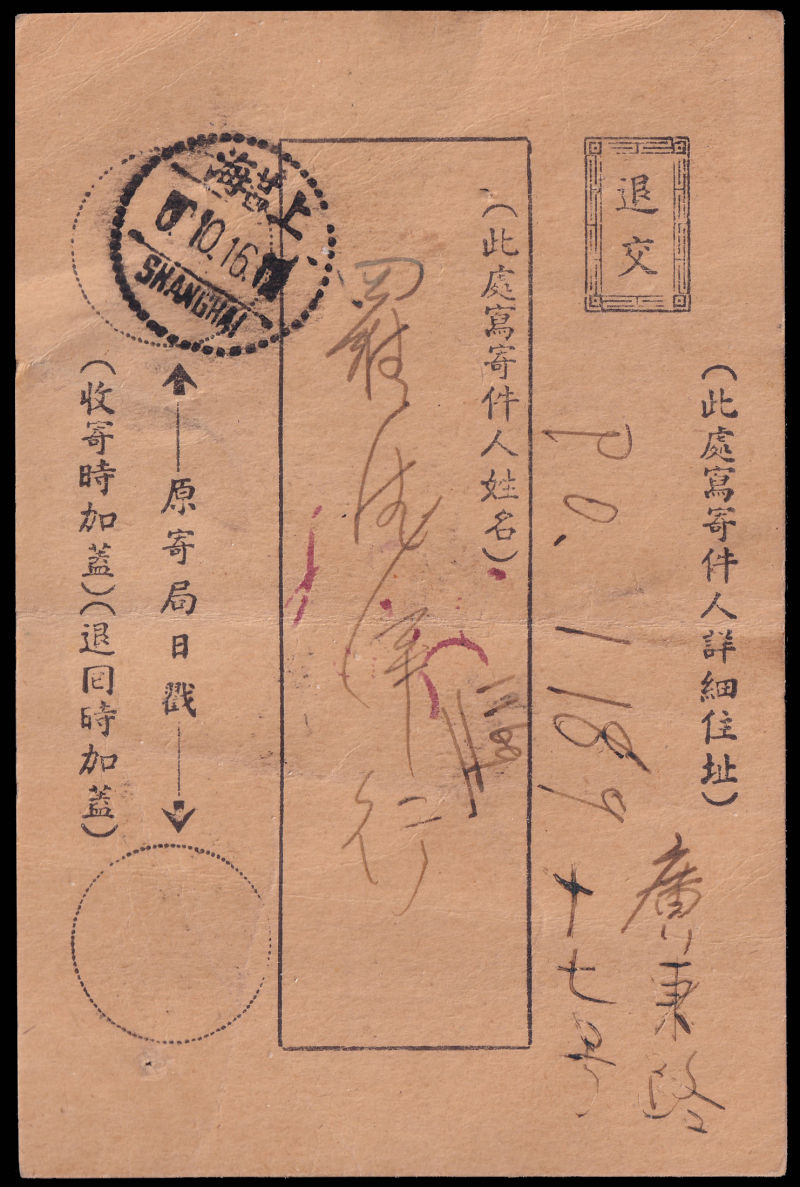 退交
（此處寫寄件人詳細住址）
廣東路
十七号
P.O. 1189
（此處寫寄件人姓名）
羅德洋行
原寄局日戳
（收寄時加蓋）（退回時加蓋）
上海
10.16.
SHANGHAI